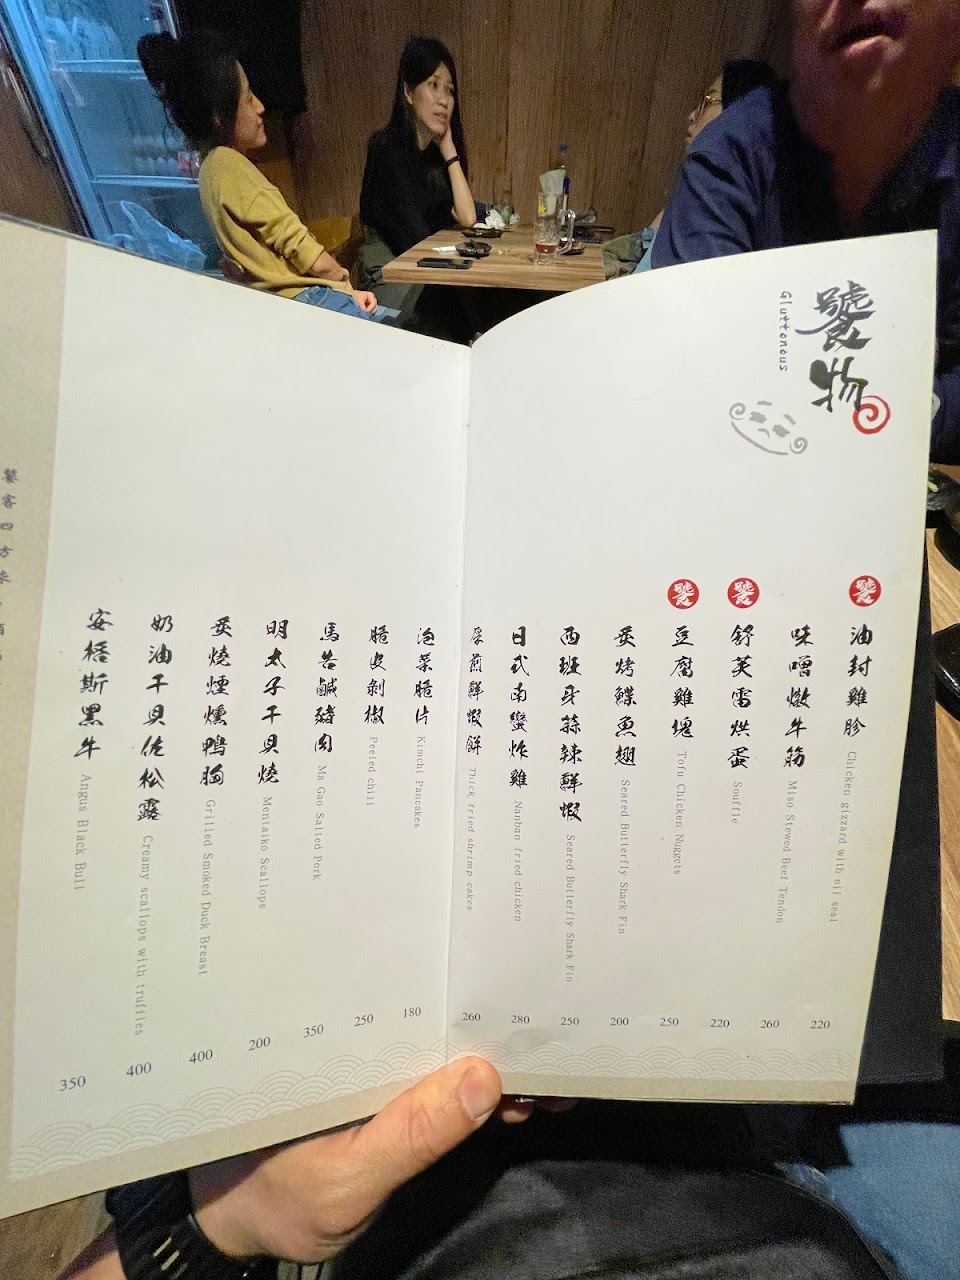 饕物
Gluttonous
饕
油封雞胗 Chicken gizzard with oil seal 220
味噌燉牛筋 Miso Stewed Beef Tendon 260
饕
舒芙蕾烘蛋 Souffle 220
饕
豆腐雞塊 Tofu Chicken Nuggets 250
炙烤鰈魚翅 Seared Butterfly Shark Fin 200
西班牙蒜辣鮮蝦 Seared Butterfly Shark Fin 250
日式南蠻炸雞 Nanban fried chicken 280
厚煎鮮蝦餅 Thick fried shrimp cakes 260
泡菜脆片 Kimchi Pancakes 180
脆皮剝椒 Peeled chili 250
馬告鹹豬肉 Ma Gao Salted Pork 350
明太子干貝燒 Mentaiko Scallops 200
炙燒煙燻鴨胸 Grilled Smoked Duck Breast 400
奶油干貝佐松露 Creamy scallops with truffles 400
安格斯黑牛 Angus Black Bull 350
饕客四方來